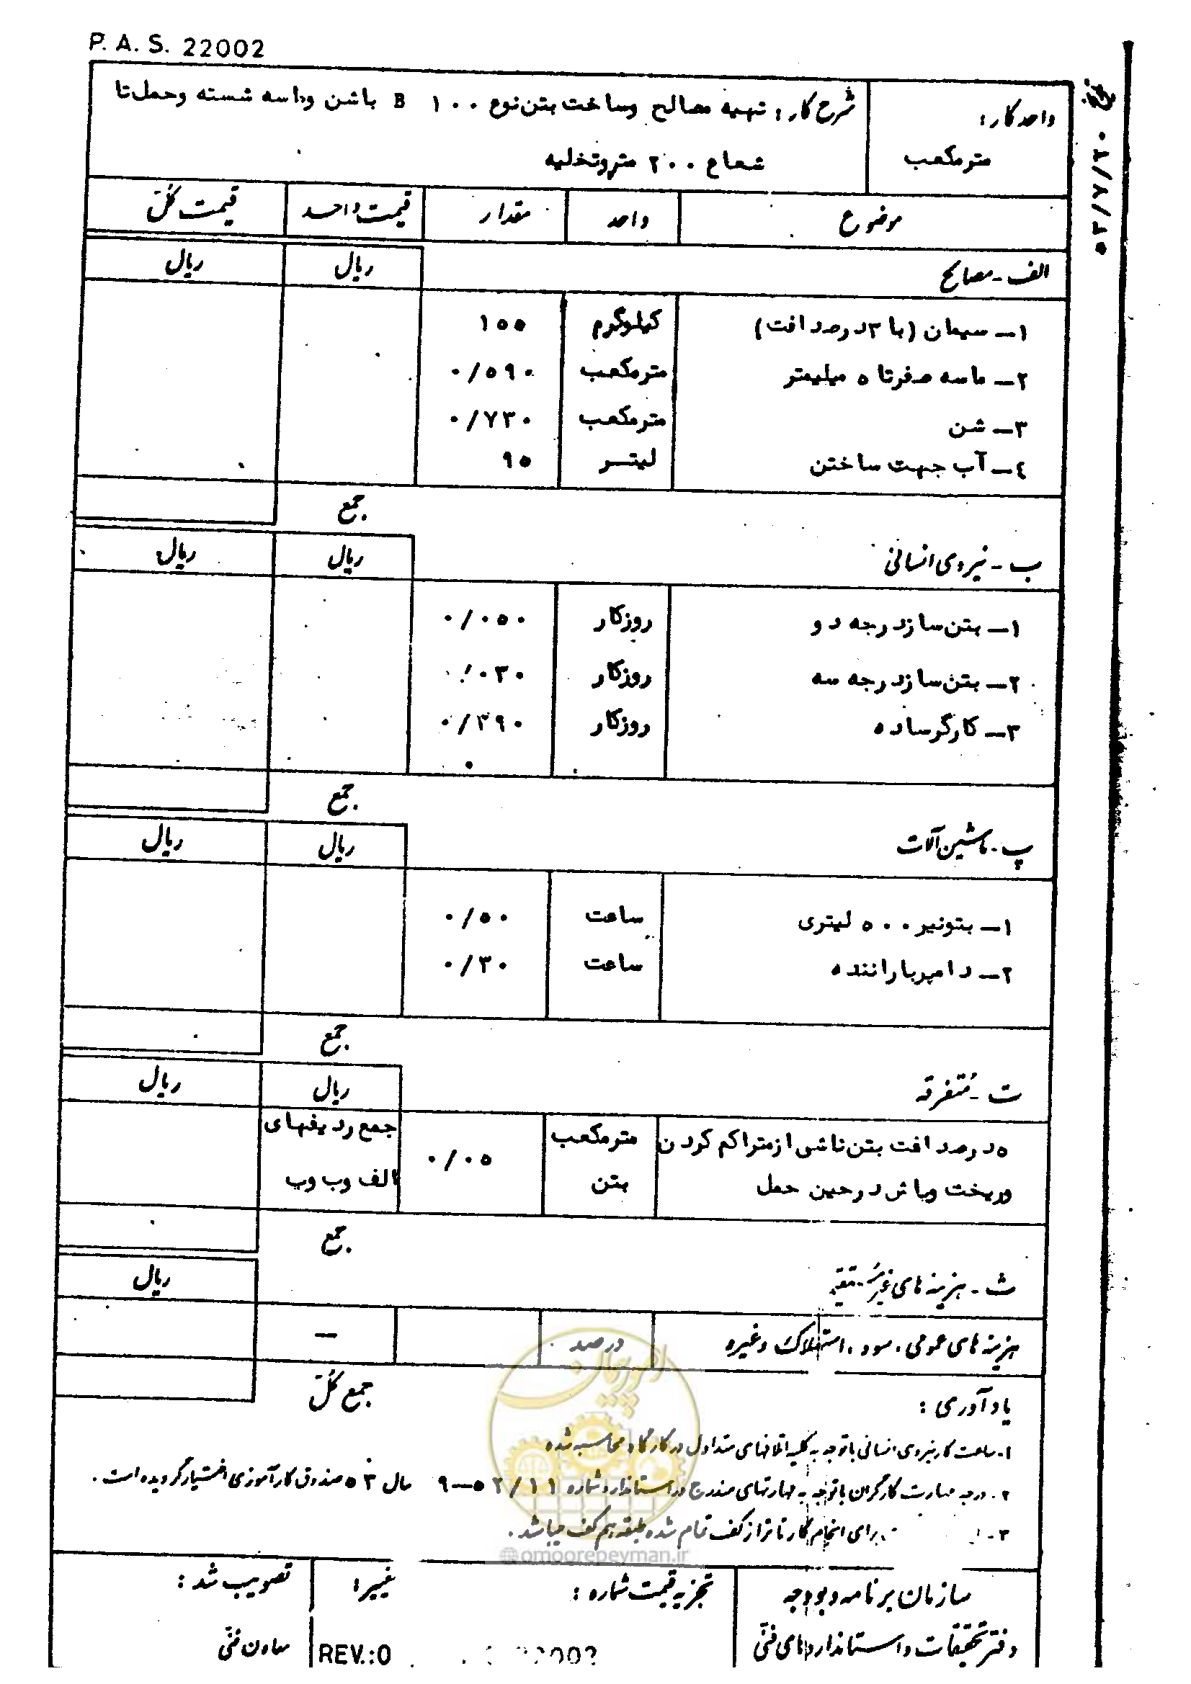 P. A. S. 22002
۵۲/۷/۳۰
واحد کار: شرح کار: تهیه مصالح وساخت بتن نوع ۱۰۰ B باشن وماسه شسته وحمل تا
مترمکعب شعاع ۲۰۰ متروتخلیه
موضوع واحد مقدار قیمت واحد قیمت کل
الف - مصالح ریال ریال
۱- سیمان (با ۳ درصد افت) کیلوگرم ۱۵۵
۲- ماسه صفرتا ۵ میلیمتر مترمکعب ۰/۵۹۰
۳- شن مترمکعب ۰/۷۳۰
۴- آب جهت ساختن لیتر ۹۵
جمع
ب - نیروی انسانی ریال ریال
۱- بتن ساز درجه دو روزکار ۰/۰۵۰
۲- بتن ساز درجه سه روزکار ۰/۰۳۰
۳- کارگرساده روزکار ۰/۳۹۰
جمع
پ - ماشین آلات ریال ریال
۱- بتونیر ۵۰۰ لیتری ساعت ۰/۵۰
۲- دامپر باراننده ساعت ۰/۳۰
جمع
ت - متفرقه ریال ریال
۵ درصد افت بتن ناشی ازمتراکم کردن مترمکعب ۰/۰۵ جمع ردیفهای
وریخت وپاش درحین حمل بتن الف وب وپ
جمع
ث - هزینه های غیرمستقیم ریال
هزینه های عمومی، سود، استهلاک وغیره درصد —
جمع کل
امور پیمان
یادآوری:
۱- ساعت کار نیروی انسانی باتوجه به کلیه اتلافهای متداول درکارگاه محاسبه شده
۲- درجه مهارت کارگران باتوجه به مهارتهای مندرج در استاندارد شماره ۵۲/۱۱-۹ سال ۵۳ صندوق کارآموزی اختیارگردیده است.
۳- برای انجام کار تا تراز کف تمام شده طبقه هم کف میباشد.
@omoorepeyman.ir
سازمان برنامه وبودجه تجزیه قیمت شماره: تغییر: تصویب شد:
دفتر تحقیقات واستانداردهای فنی 22002 REV.:0 معاون فنی